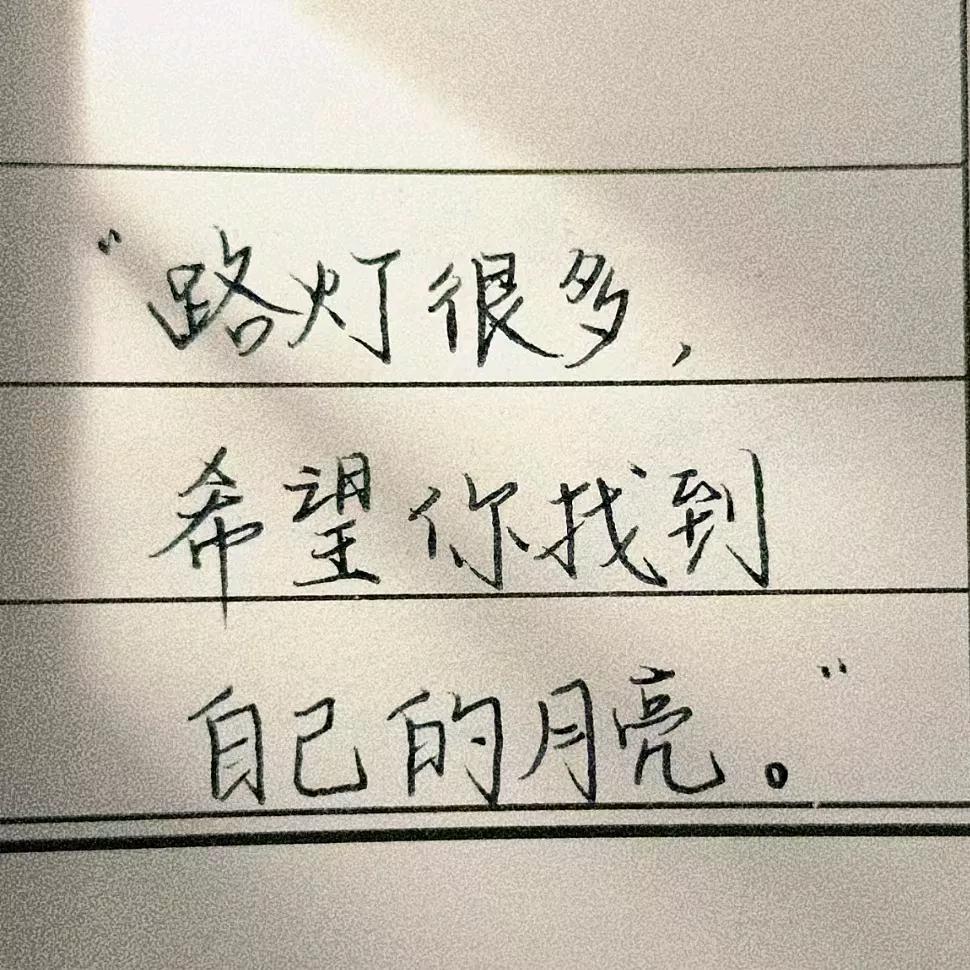 “路灯很多，
希望你找到
自己的月亮。”